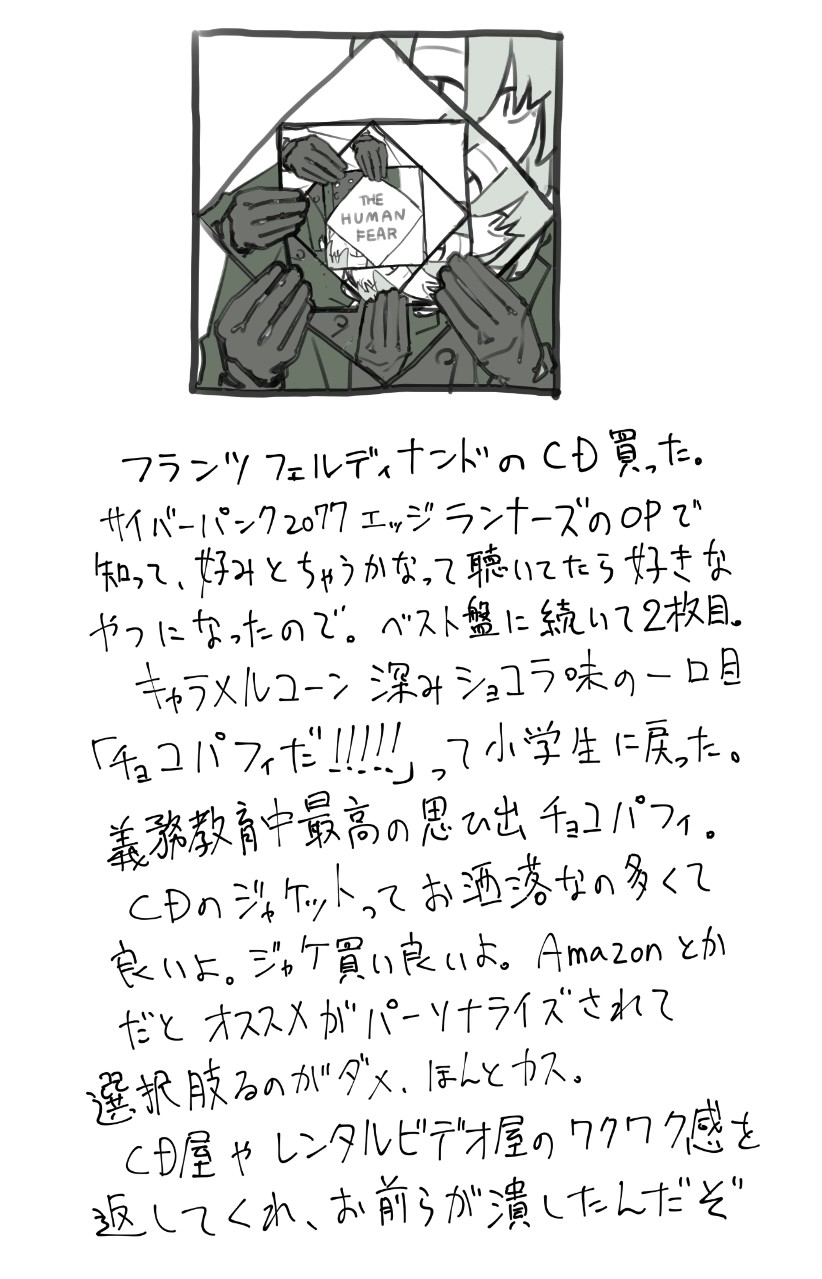 THE
HUMAN
FEAR
フランツ フェルディナンドの CD 買った。
サイバーパンク2077 エッジランナーズのOPで
知って、好みとちゃうかなって聴いてたら好きな
やつになったので。ベスト盤に続いて2枚目。
キャラメルコーン 深みショコラ味の一口目
「チョコパフィだ!!!!!」って小学生に戻った。
義務教育中最高の思ひ出 チョコパフィ。
CDのジャケットってお洒落なの多くて
良いよ。ジャケ買い良いよ。Amazonとか
だと オススメがパーソナライズされて
選択肢るのがダメ、ほんとカス。
CD屋やレンタルビデオ屋のワクワク感を
返してくれ、お前らが潰したんだぞ